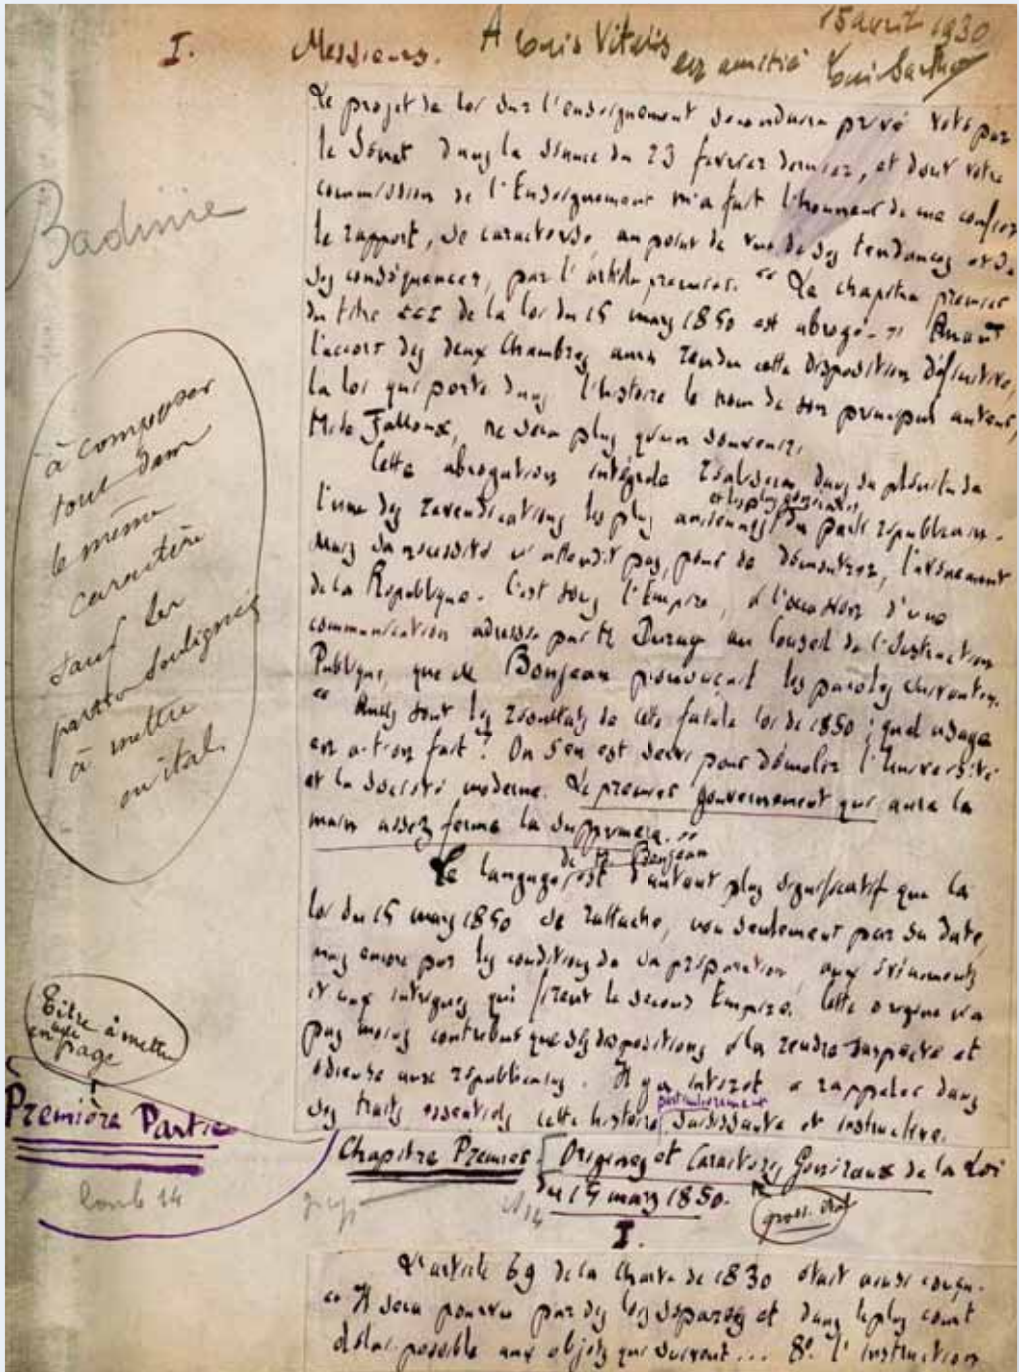 15 avril 1930
I. Messieurs. A Louis Vitalis
en amitié Louis Barthou
Le projet de loi sur l'enseignement secondaire privé voté par
le Sénat dans la séance du 23 février dernier, et dont votre
commission de l'Enseignement m'a fait l'honneur de me confier
le rapport, se caractérise, au point de vue de ses tendances et de
ses conséquences, par l'article premier. "Le chapitre premier
du titre III de la loi du 15 mars 1850 est abrogé." Quand
l'accord des deux Chambres aura rendu cette disposition définitive,
la loi qui porte dans l'histoire le nom de son principal auteur,
M. de Falloux, ne sera plus qu'un souvenir.
Cette abrogation intégrale réalisera dans sa plénitude
et les plus générales
l'une des revendications les plus anciennes du parti républicain.
Mais sa nécessité n'attendit pas, pour se démontrer, l'avènement
de la République. C'est sous l'Empire, à l'occasion d'une
communication adressée par M. Duruy au Conseil de l'Instruction
Publique, que M. Bonjean prononçait les paroles suivantes.
"Quels sont les résultats de cette fatale loi de 1850 ; quel usage
en a-t-on fait ? On s'en est servi pour démolir l'Université
et la société moderne. Le premier gouvernement qui aura la
main assez ferme la supprimera."
de M. Bonjean
Le langage est d'autant plus significatif que la
loi du 15 mars 1850 se rattache, non seulement par sa date,
mais encore par les conditions de sa préparation, aux événements
et aux intrigues qui firent le second Empire. Cette origine n'a
pas moins contribué que ses dispositions à la rendre suspecte et
odieuse aux républicains. Il y a intérêt à rappeler dans
particulièrement
ses traits essentiels cette histoire saisissante et instructive.
Chapitre Premier [Origines et Caractères Généraux de la Loi
du 15 mars 1850.
I.
L'article 69 de la Charte de 1830 était ainsi conçu.
"Il sera pourvu par des lois séparées et dans le plus court
délai possible aux objets qui suivent... 8° l'instruction
Badinie
à composer
tout dans
le même
caractère
sauf les
parties soulignées
à mettre
en ital.
Titre à mettre
en page
Première Partie
14